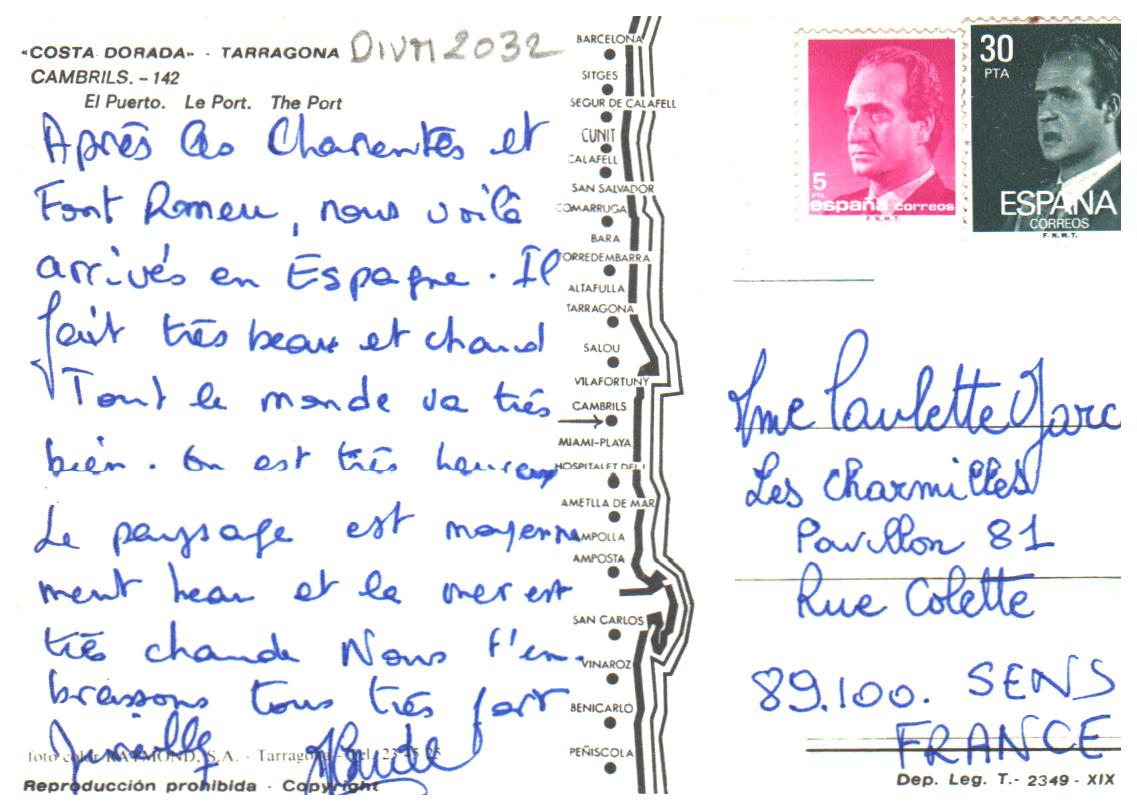 «COSTA DORADA» - TARRAGONA DIVM2032
CAMBRILS. - 142
El Puerto. Le Port. The Port
Après les Charentes et
Font Romeu, nous voilà
arrivés en Espagne. Il
fait très beau et chaud
Tout le monde va très
bien. On est très heureux
Le paysage est moyenne
ment beau et la mer est
très chaude Nous t'em-
brassons tous très fort
foto color RAYMOND, S.A. - Tarragona - Tel. 23
Reproducción prohibida - Copyright
BARCELONA
SITGES
SEGUR DE CALAFELL
CUNIT
CALAFELL
SAN SALVADOR
COMARRUGA
BARA
TORREDEMBARRA
ALTAFULLA
TARRAGONA
SALOU
VILAFORTUNY
CAMBRILS
MIAMI-PLAYA
HOSPITALET DEL I
AMETLLA DE MAR
AMPOLLA
AMPOSTA
SAN CARLOS
VINAROZ
BENICARLO
PEÑISCOLA
5
PTA
españa correos
F.N.M.T.
30
PTA
ESPAÑA
CORREOS
F.N.M.T.
Mme Paulette Garc
Les Charmilles
Pavillon 81
Rue Colette
89.100. SENS
FRANCE
Dep. Leg. T.- 2349 - XIX